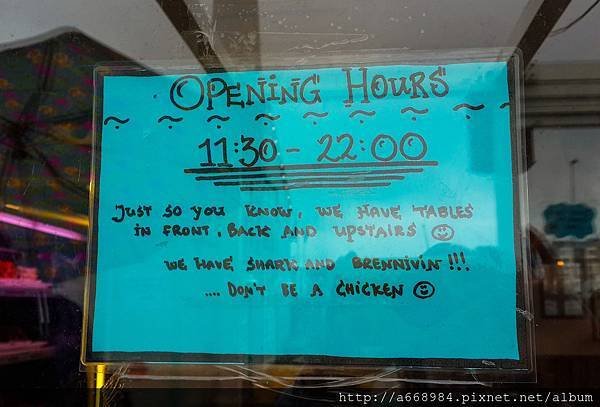 OPENING HOURS
11:30 - 22:00
JUST SO YOU KNOW, WE HAVE TABLES
IN FRONT, BACK AND UPSTAIRS ☺
WE HAVE SHARK AND BRENNIVIN!!!
.... DON'T BE A CHICKEN ☺
http://a668984.pixnet.net/album